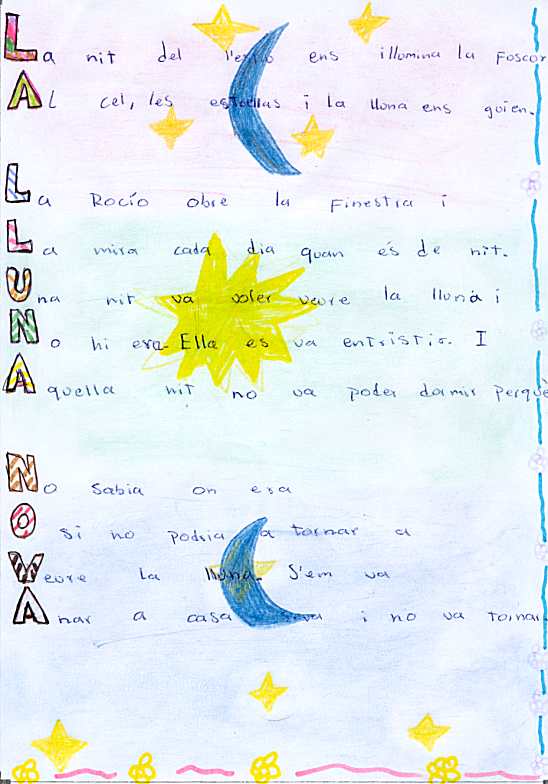 La nit del l'estiu ens illumina la foscor
Al cel, les estrellas i la lluna ens guien.
La Rocío obre la finestra i
La mira cada dia quan és de nit.
Una nit va voler veure la lluna i
No hi era. Ella es va entristir. I
Aquella nit no va poder dormir perquè
No sabia on era
O si no podria a tornar a
Veure la lluna. S'em va
Anar a casa seva i no va tornar.